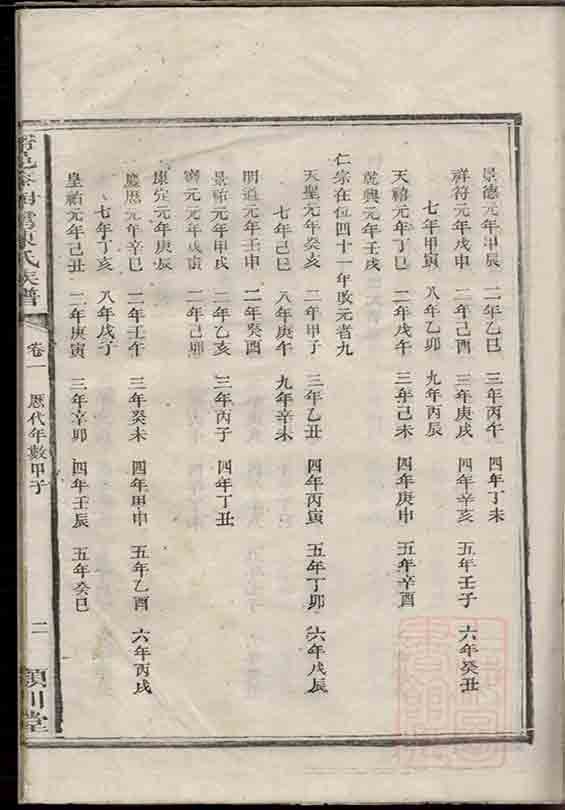 景德元年甲辰 二年乙巳 三年丙午 四年丁未
祥符元年戊申 二年己酉 三年庚戌 四年辛亥 五年壬子 六年癸丑
七年甲寅 八年乙卯 九年丙辰
天禧元年丁巳 二年戊午 三年己未 四年庚申 五年辛酉
乾興元年壬戌
仁宗在位四十一年改元者九
天聖元年癸亥 二年甲子 三年乙丑 四年丙寅 五年丁卯 六年戊辰
七年己巳 八年庚午 九年辛未
明道元年壬申 二年癸酉
景祐元年甲戌 二年乙亥 三年丙子 四年丁丑
寶元元年戊寅 二年己卯
康定元年庚辰
慶歷元年辛巳 二年壬午 三年癸未 四年甲申 五年乙酉 六年丙戌
七年丁亥 八年戊子
皇祐元年己丑 二年庚寅 三年辛卯 四年壬辰 五年癸巳
陳氏族譜 卷一 歷代年數甲子 二 潁川堂